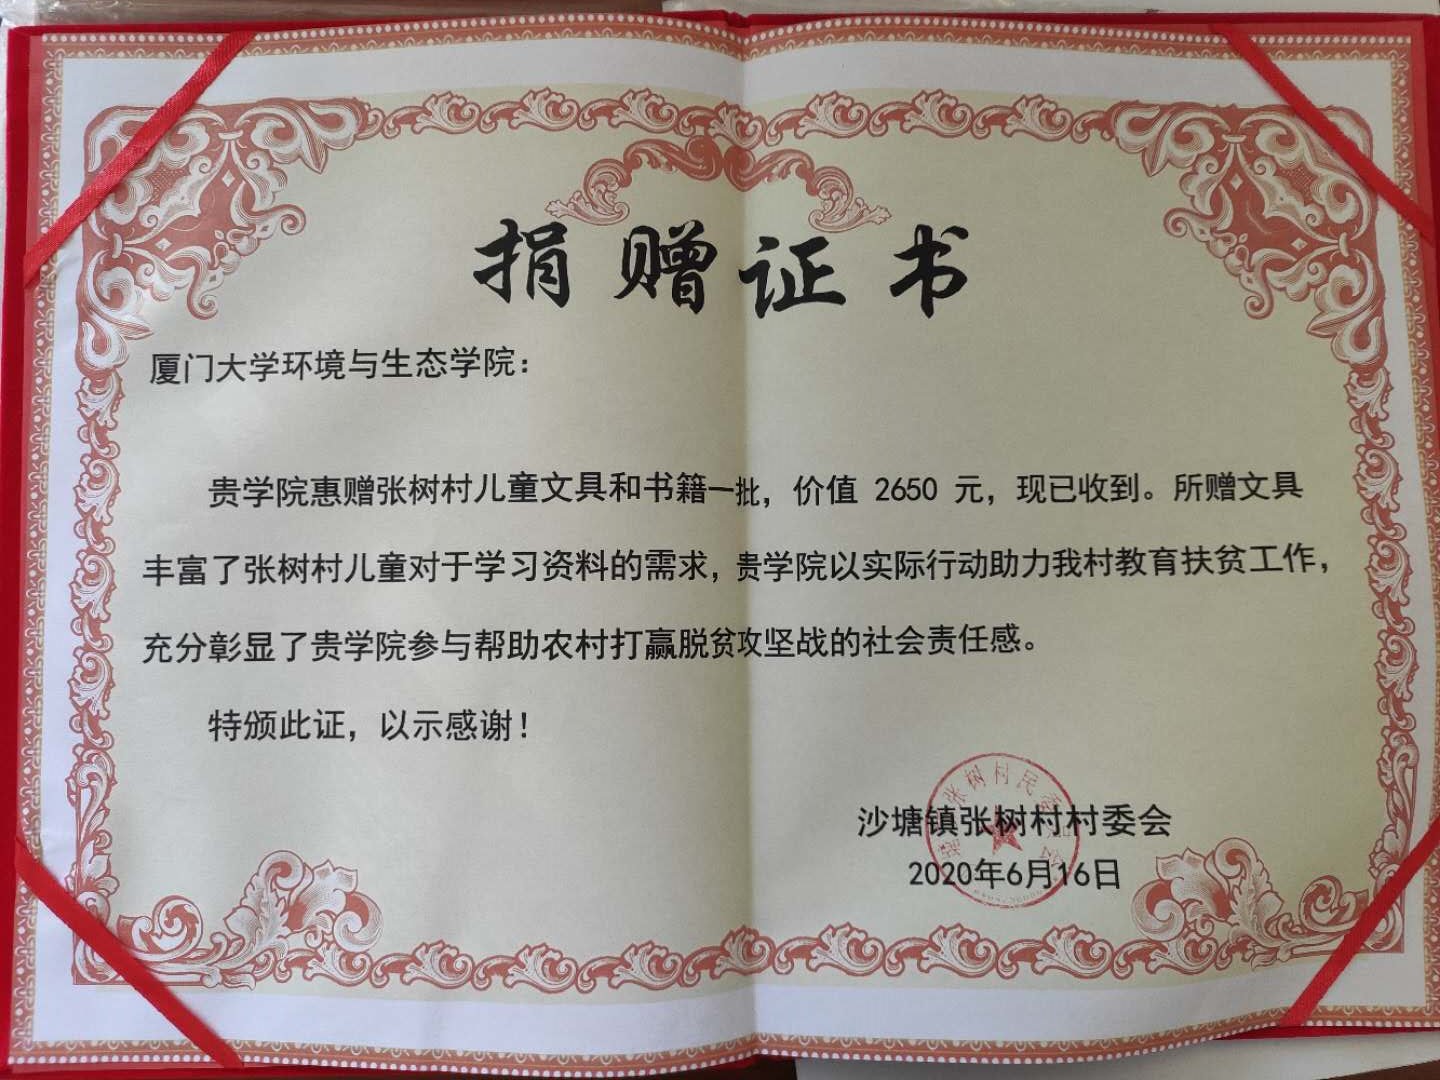 捐赠证书
厦门大学环境与生态学院：
贵学院惠赠张树村儿童文具和书籍一批，价值 2650 元，现已收到。所赠文具
丰富了张树村儿童对于学习资料的需求，贵学院以实际行动助力我村教育扶贫工作，
充分彰显了贵学院参与帮助农村打赢脱贫攻坚战的社会责任感。
特颁此证，以示感谢！
张树村民委
会
沙塘镇张树村村委会
2020年6月16日